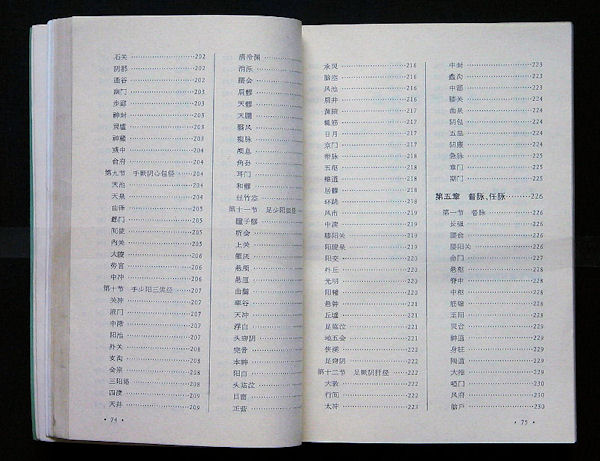 石关 202
阴都 202
通谷 202
幽门 203
步廊 203
神封 203
灵墟 203
神藏 204
彧中 204
俞府 204
第九节 手厥阴心包经 204
天池 204
天泉 205
曲泽 205
郄门 205
间使 205
内关 205
大陵 206
劳宫 206
中冲 206
第十节 手少阳三焦经 207
关冲 207
液门 207
中渚 207
阳池 207
外关 208
支沟 208
会宗 208
三阳络 208
四渎 208
天井 209
·74·
清冷渊
消泺
臑会
肩髎
天髎
天牖
翳风
瘈脉
颅息
角孙
耳门
和髎
丝竹空
第十一节 足少阳胆经
瞳子髎
听会
上关
颔厌
悬颅
悬厘
曲鬓
率谷
天冲
浮白
头窍阴
完骨
本神
阳白
头临泣
目窗
正营
承灵 216
脑空 216
风池 216
肩井 216
渊腋 216
辄筋 217
日月 217
京门 217
带脉 217
五枢 218
维道 218
居髎 218
环跳 218
风市 219
中渎 219
膝阳关 219
阳陵泉 219
阳交 219
外丘 219
光明 220
阳辅 220
悬钟 220
丘墟 220
足临泣 221
地五会 221
侠溪 221
足窍阴 221
第十二节 足厥阴肝经 222
大敦 222
行间 222
太冲 222
中封 223
蠡沟 223
中都 223
膝关 223
曲泉 224
阴包 224
五里 224
阴廉 224
急脉 225
章门 225
期门 225
第五章 督脉、任脉 226
第一节 督脉 226
长强 226
腰俞 226
腰阳关 227
命门 227
悬枢 228
脊中 228
中枢 228
筋缩 228
至阳 228
灵台 228
神道 229
身柱 229
陶道 229
大椎 229
哑门 230
风府 230
脑户 230
·75·